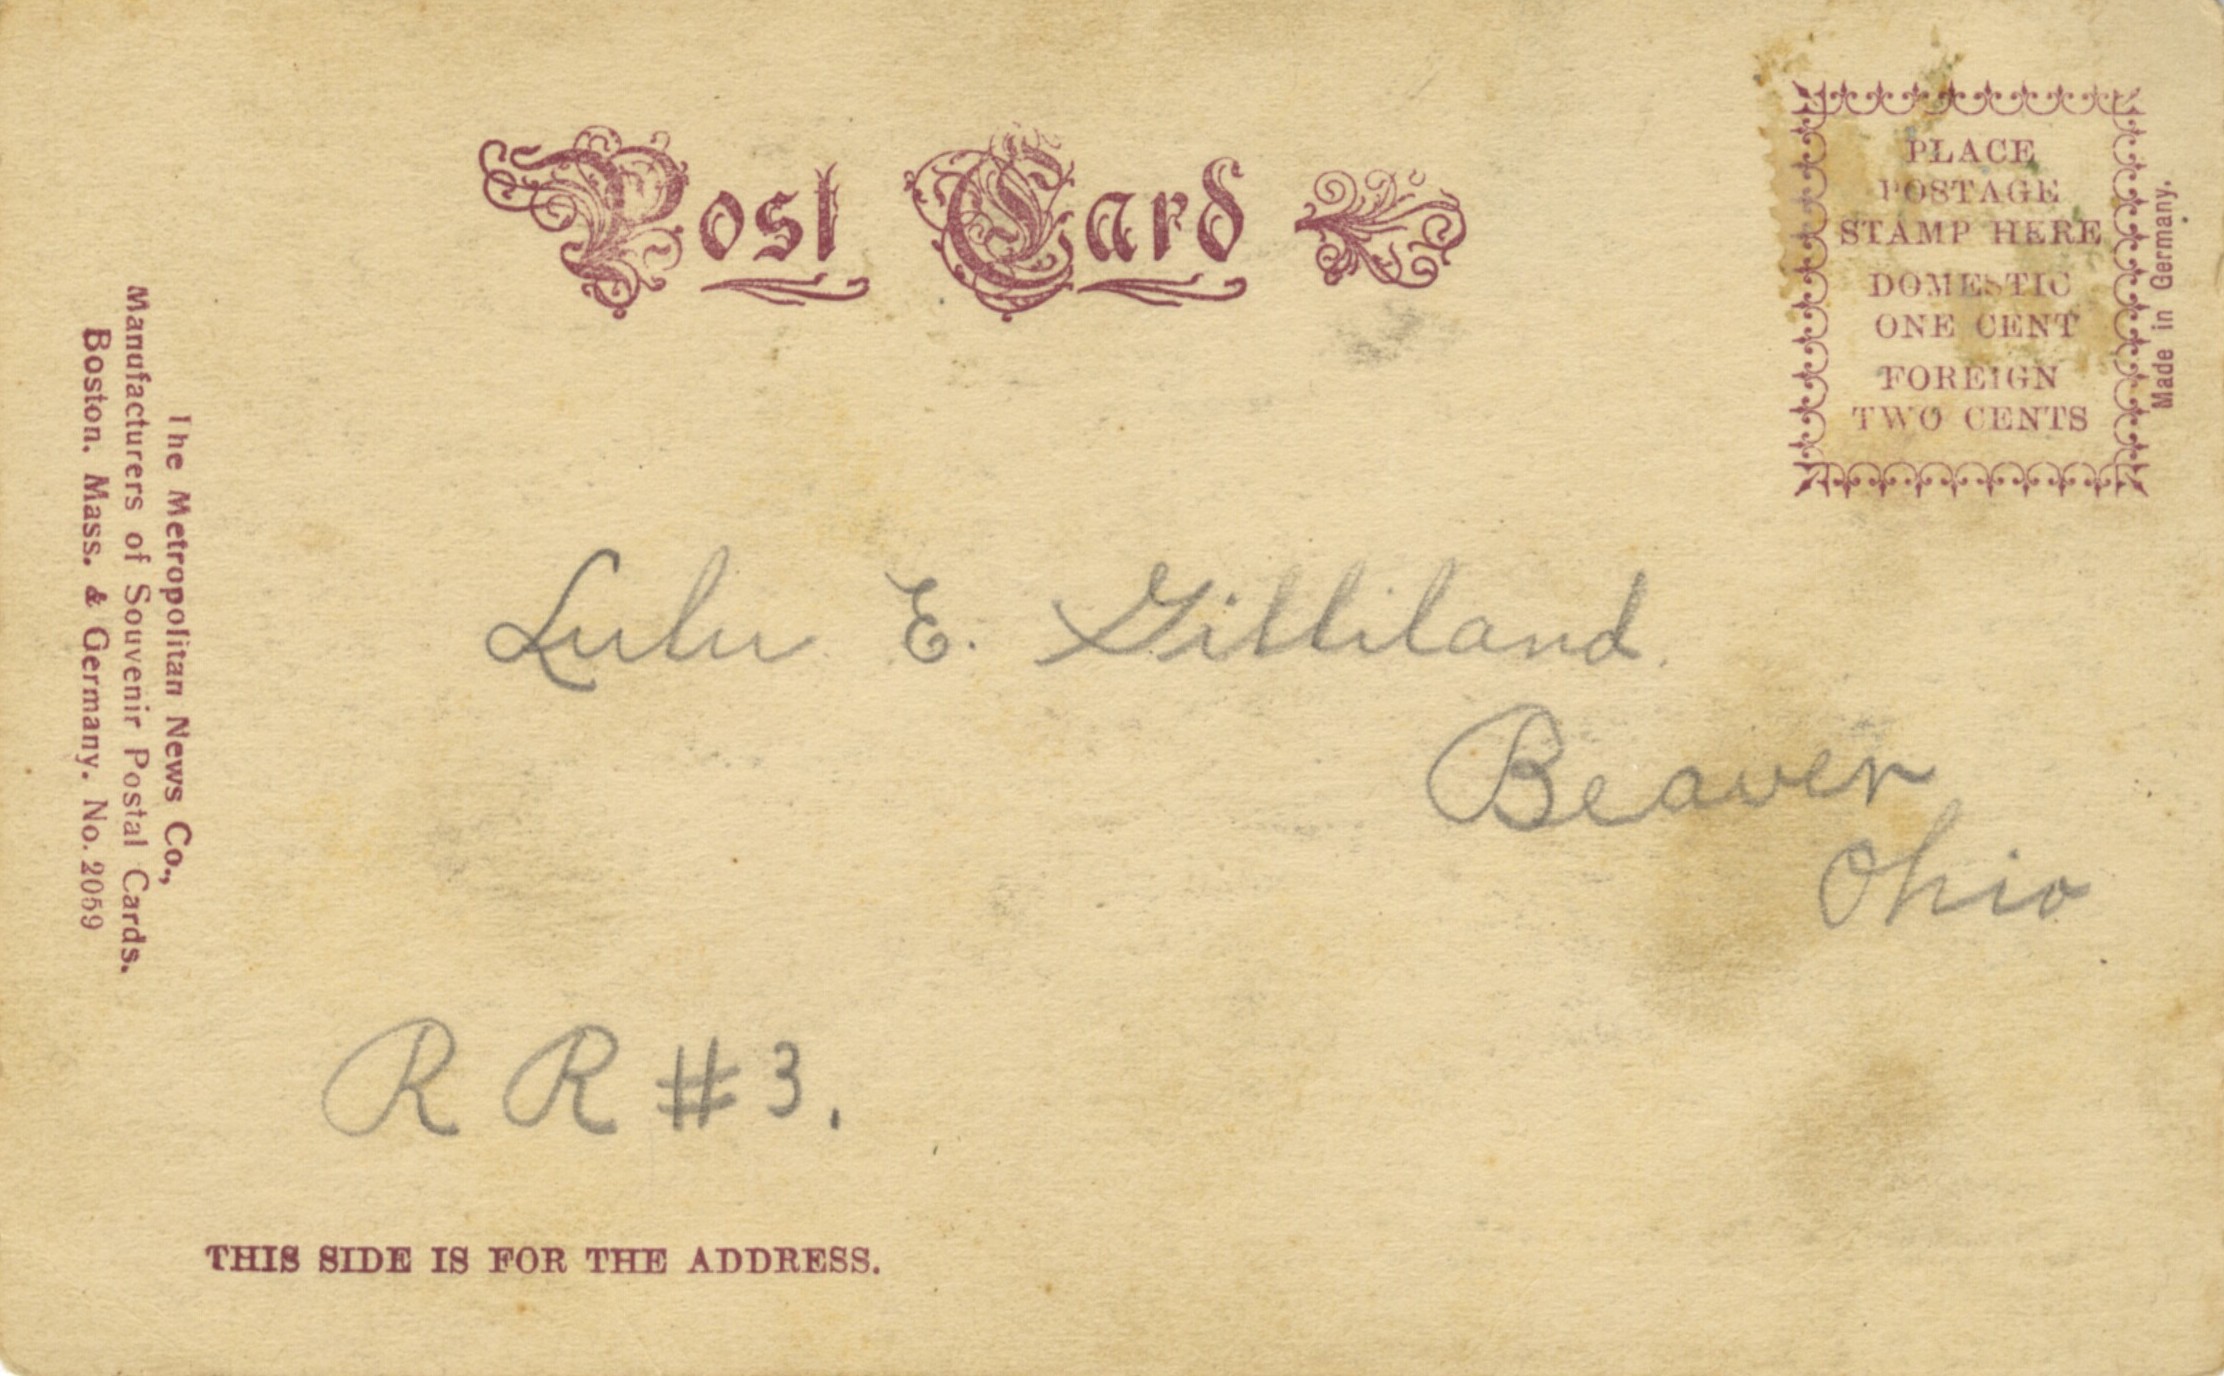 Post Card
PLACE
POSTAGE
STAMP HERE
DOMESTIC
ONE CENT
FOREIGN
TWO CENTS
Made in Germany.
The Metropolitan News Co.,
Manufacturers of Souvenir Postal Cards.
Boston. Mass. & Germany. No. 2059
Lulu E. Gilliland.
Beaver
Ohio
R R #3.
THIS SIDE IS FOR THE ADDRESS.